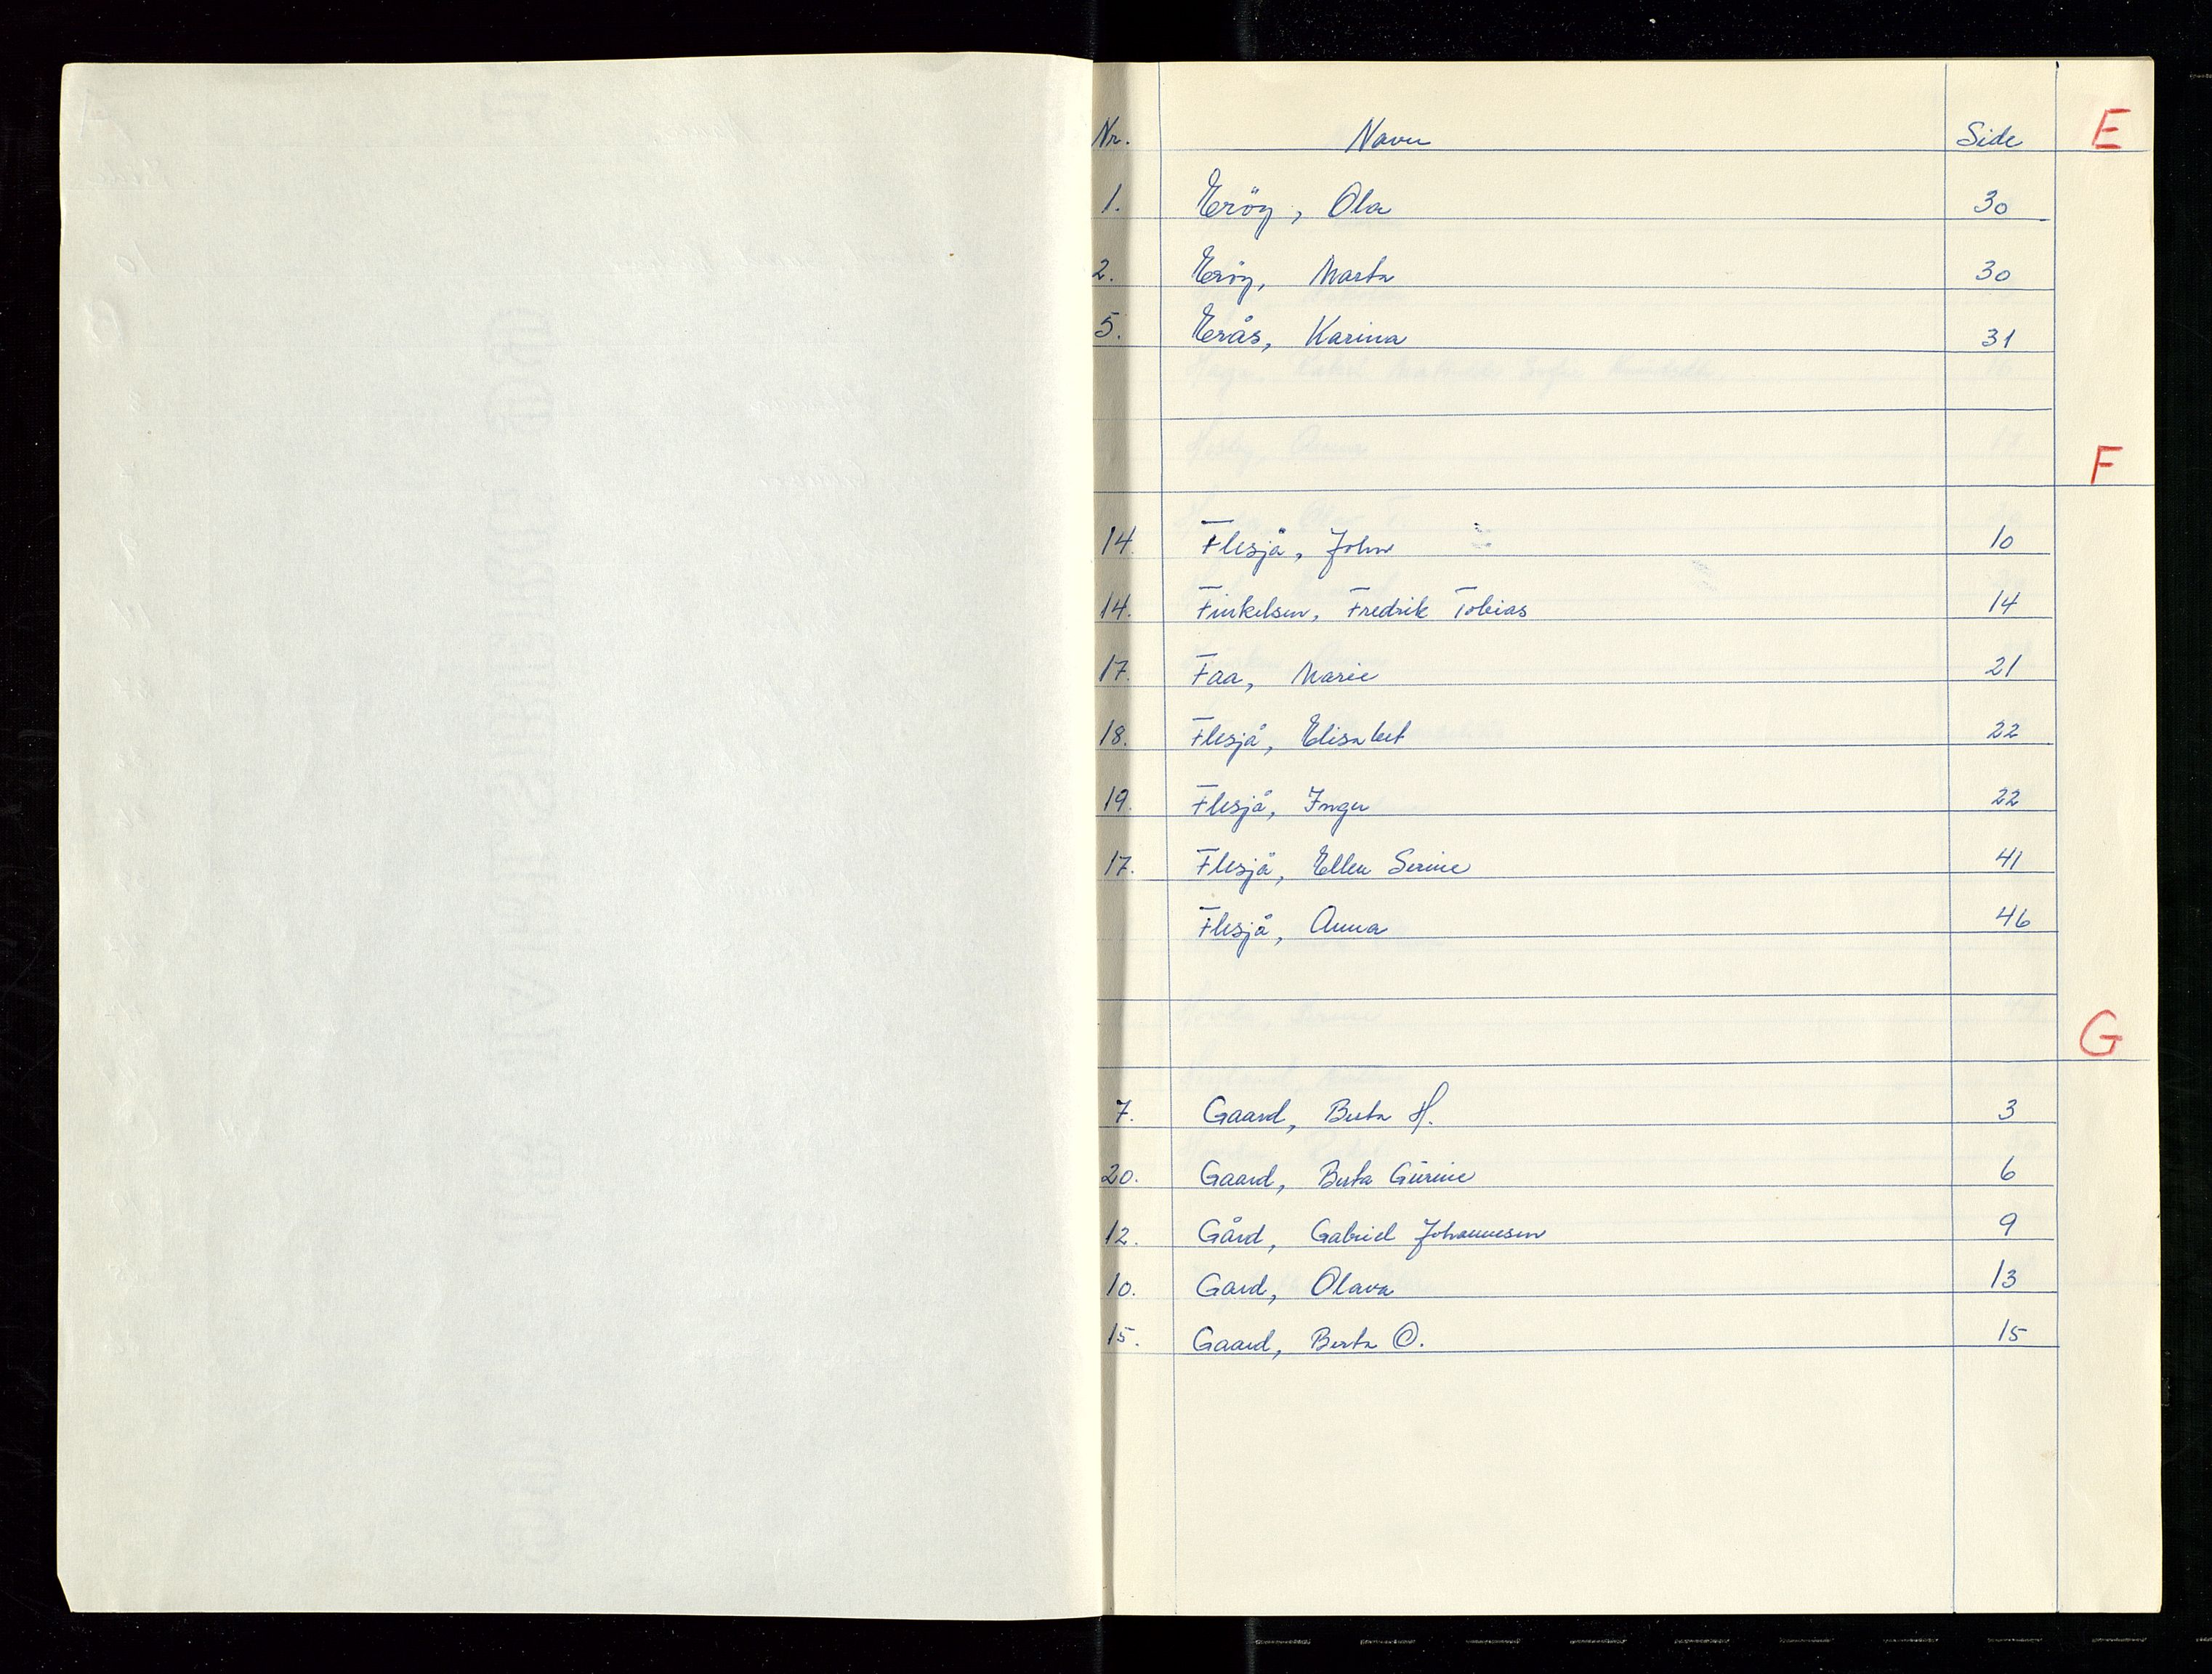 Nr. Navn Side E
1. Eröy, Ola 30
2. Eröy, Marta 30
5. Erås, Karina 31
F
14. Flesjå, John 10
14. Finkelsen, Fredrik Tobias 14
17. Faa, Marie 21
18. Flesjå, Elisabet 22
19. Flesjå, Inger 22
17. Flesjå, Ellen Serine 41
Flesjå, Anna 46
G
7. Gaard, Berta H. 3
20. Gaard, Berta Gurine 6
12. Gård, Gabriel Johannesen 9
10. Gard, Olava 13
15. Gaard, Berta O. 15